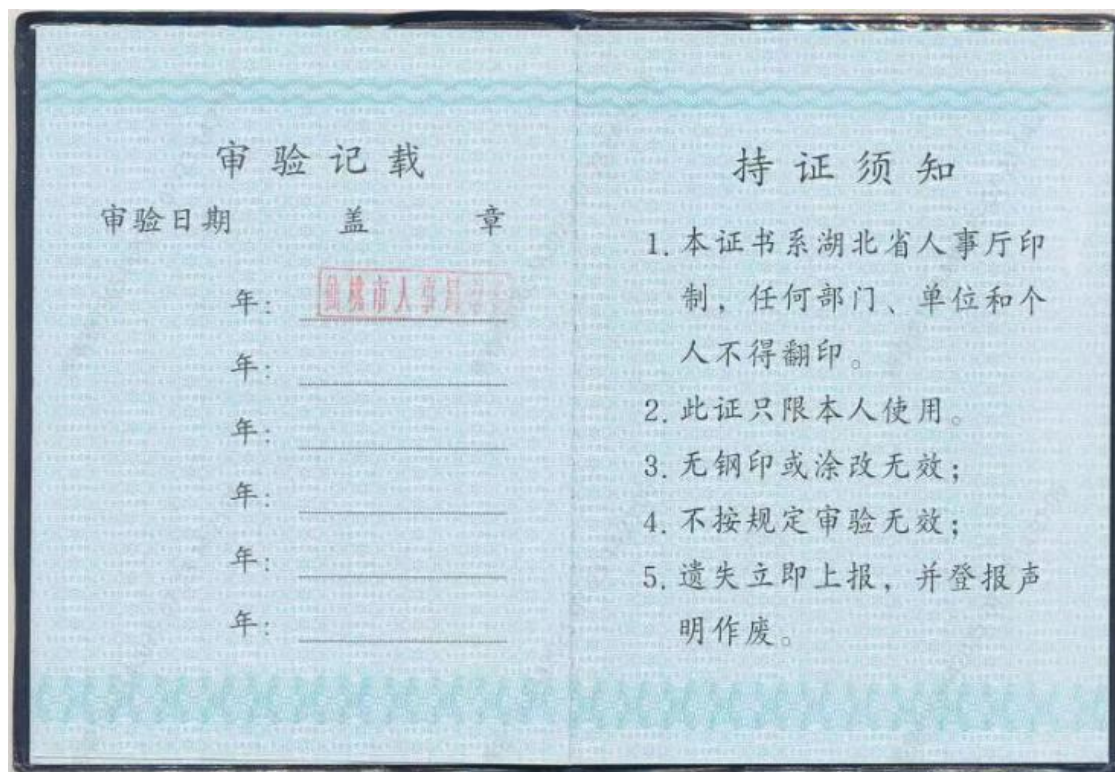 审验记载
审验日期 盖 章
年:
仙桃市人事局
年:
年:
年:
年:
年:
持证须知
1.本证书系湖北省人事厅印
制，任何部门、单位和个
人不得翻印。
2.此证只限本人使用。
3.无钢印或涂改无效；
4.不按规定审验无效；
5.遗失立即上报，并登报声
明作废。